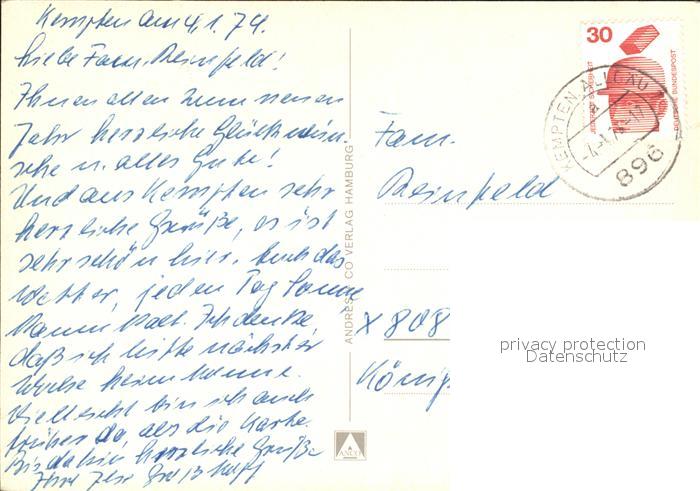 Kempten am 4.1.74.
Liebe Fam. Reinfeld!
Ihnen allen zum neuen
Jahr herzliche Glückwün
sche u. alles Gute!
Und aus Kempten sehr
herzliche Grüße, es ist
sehr schön hier. Auch das
Wetter, jeden Tag Sonne
kaum kalt. Ich denke,
daß ich bitte nächster
Woche heim komme.
Vielleicht bin ich auch
früher da, als die Karte.
Bis dahin herzliche Grüße
Ihre
Fam.
Reinfeld
X 808
König
ANDRES + CO VERLAG HAMBURG
ANCO
30
JEDERZEIT SICHERHEIT
DEUTSCHE BUNDESPOST
KEMPTEN, ALLGÄU
a
896
privacy protection
Datenschutz